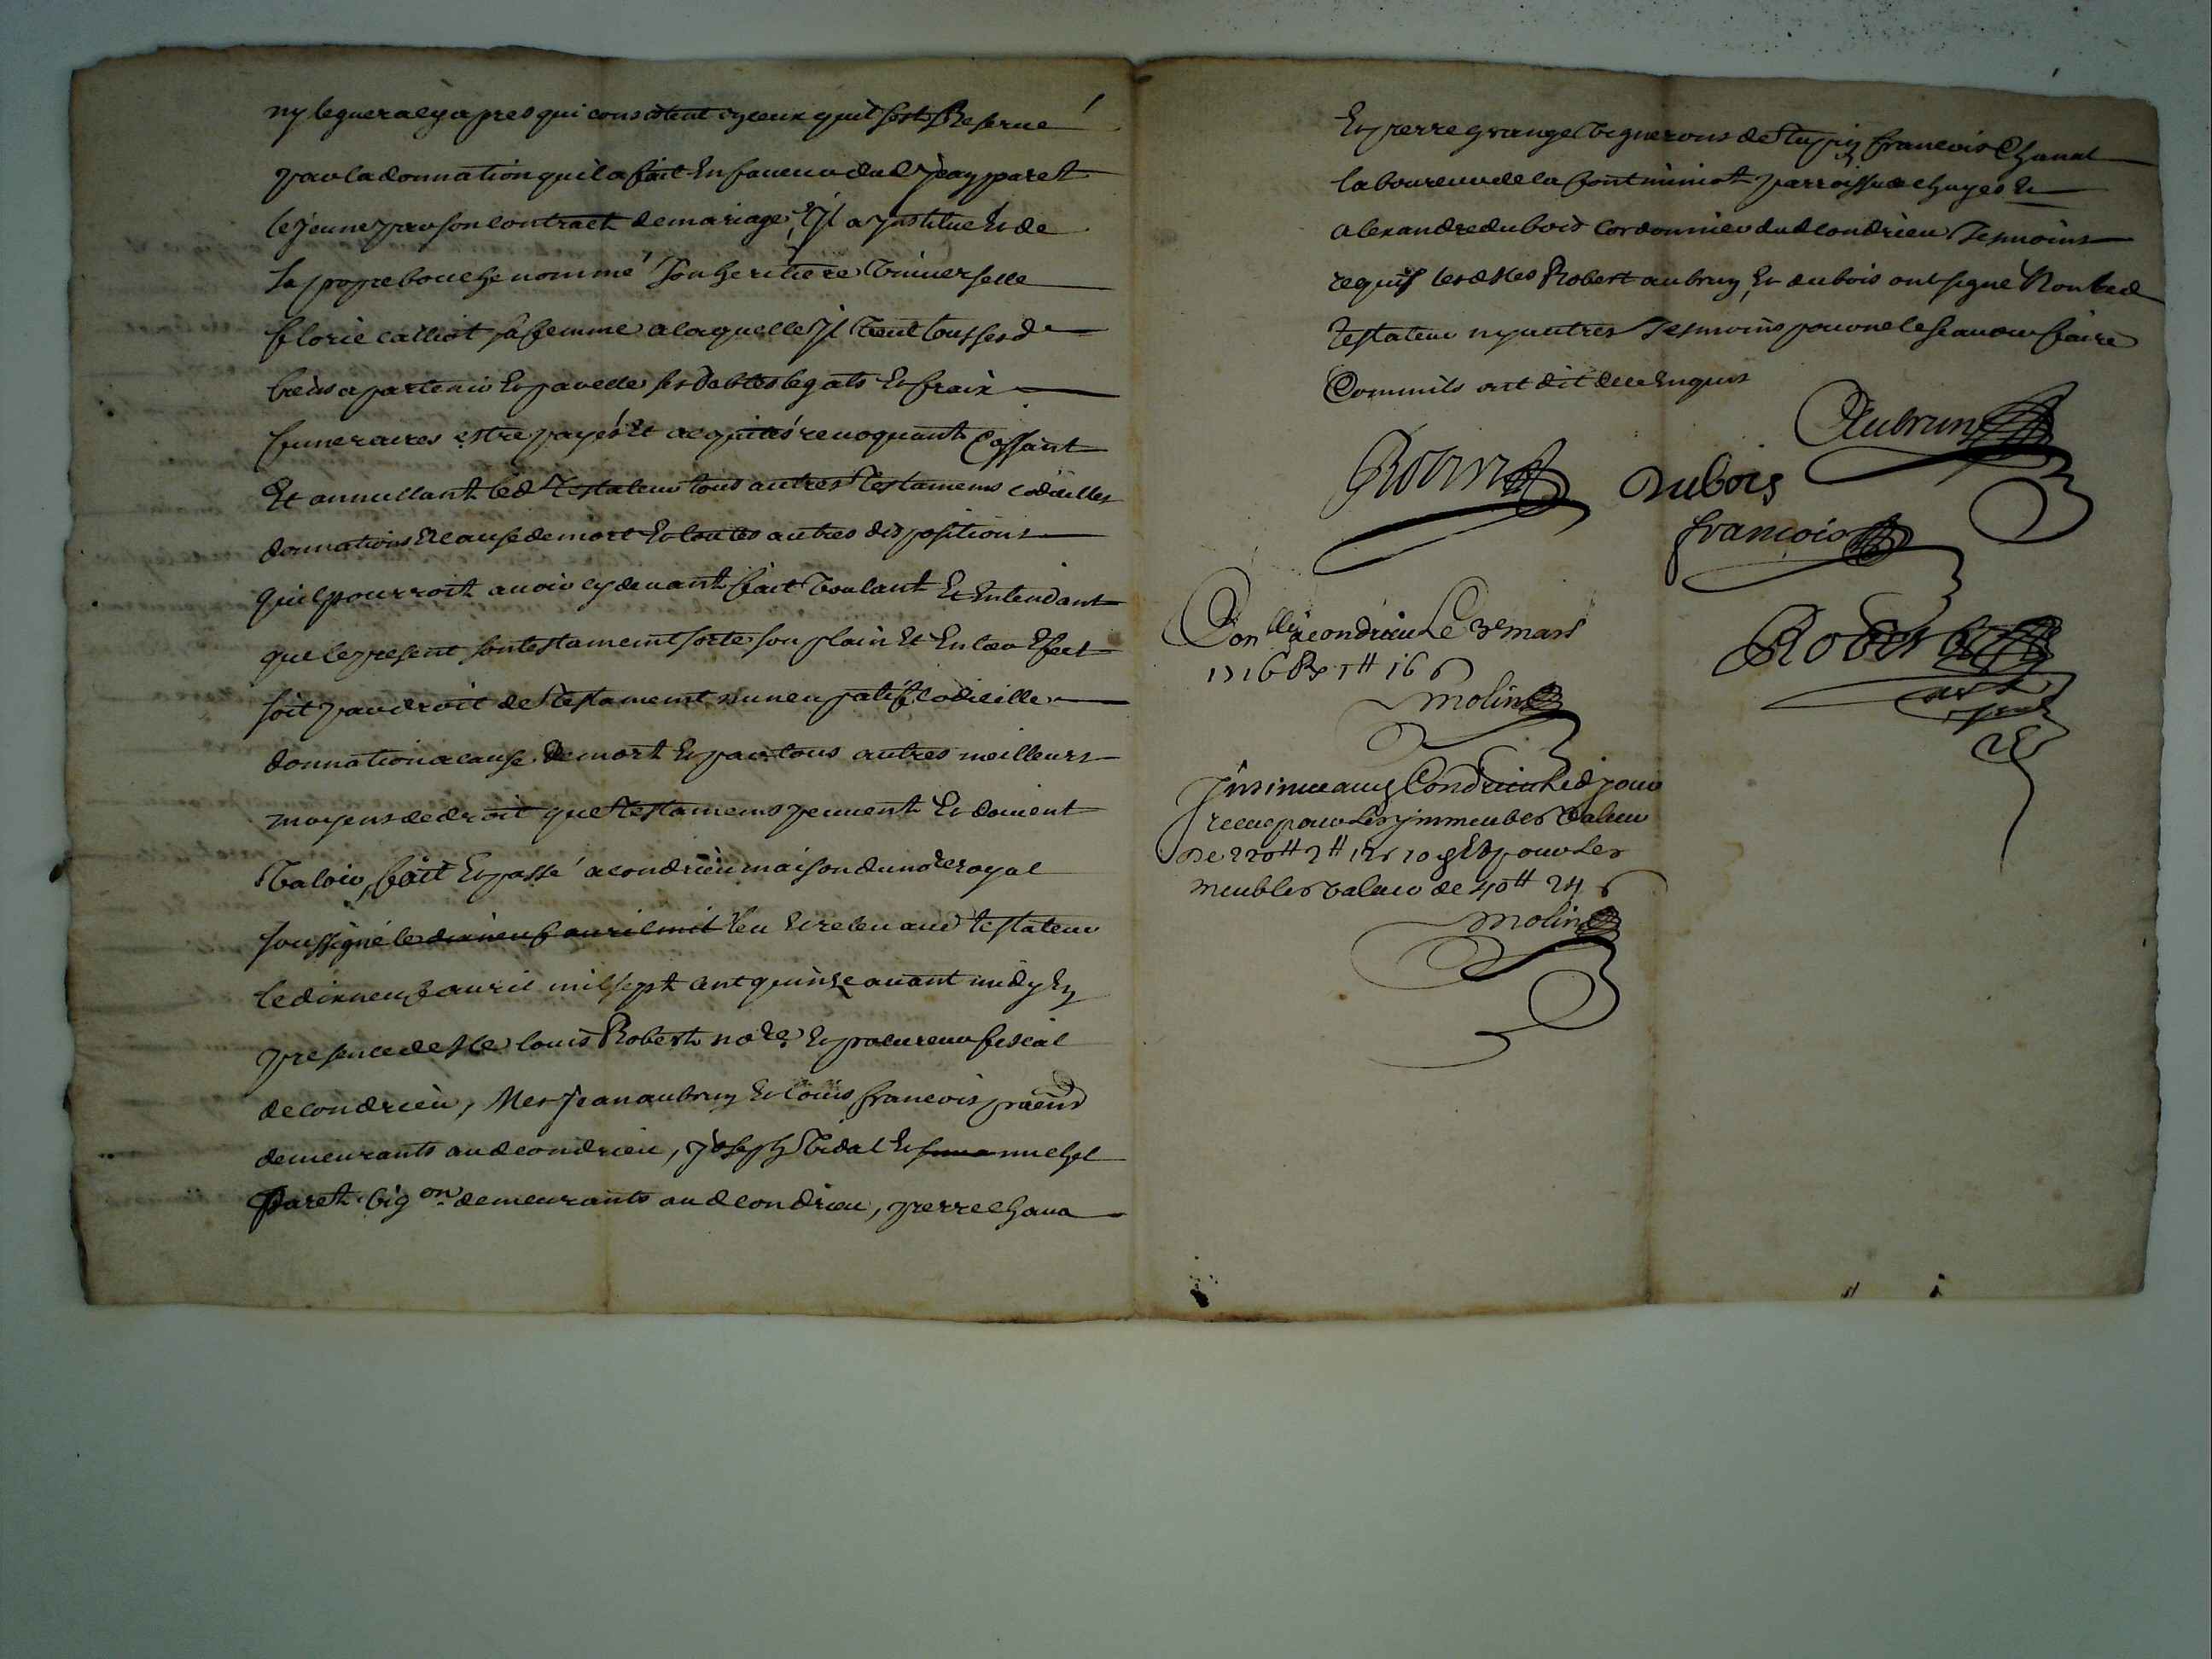 ny leguera cy apres qui consistent en ceux quil sest Reserué
par la donnation quil a fait En faueur dud Jean paret
le jeune par son contract de mariage, Il a Institué Et de
sa propre bouche nommé Son heritiere Vniuerselle
florie calliot sa femme a laquelle Il Veut tous sesd
biens apartenir Et par elle ses debtes legats Et fraix
funeraires estre payés Et acquités reuoquant Cassant
Et annullant led Testateur tous autres Testamens codicilles
donnations a cause de mort Et toutes autres dispositions
quil pourroit auoir cy deuant fait Voulant Et Entendant
que le present son testament sorte son plain Et Entier Efect
soit par droit de Testament nuncupatif, codicille
donnation a cause de mort Et par tous autres meilleurs
moyens de droit que Testamens peuuent Et doiuent
Valoir, fait Et passé a condrieu maison du nore royal
soussigné le dixneuf auril mil leu Et releu aud testateur
le dixneuf auril mil sept cent quinze auant midy En
presence de Me louis Robert nore Et procureur fiscal
de condrieu, Mes Jean aubrun Et louis francois
demeurants aud condrieu, Joseph Vidal Et michel
Paret vigon demeurants aud condrieu, pierre chaua
Et pierre grange Vignerons de Tupin francois Chanal
laboureur de la parroisse de chuyes Et
alexandre dubois Cordonnier dud condrieu Tesmoins
requis lesd Mes Robert aubrun, Et dubois ont signé Non led
Testateur ny autres Tesmoins pour ne le scauoir faire
Comme ils ont dit de ce Enquis
Aubrun
Robert
Dubois
francois
Con lle a condrieu Le 3e mars
1716 Rx 1tt 16 s
Robert
molin
Insinué aud Condrieu Led jour
receu pour Les immeubles Valeur
De 220tt 2tt Et pour Les
meubles Valeur de 40tt
molin